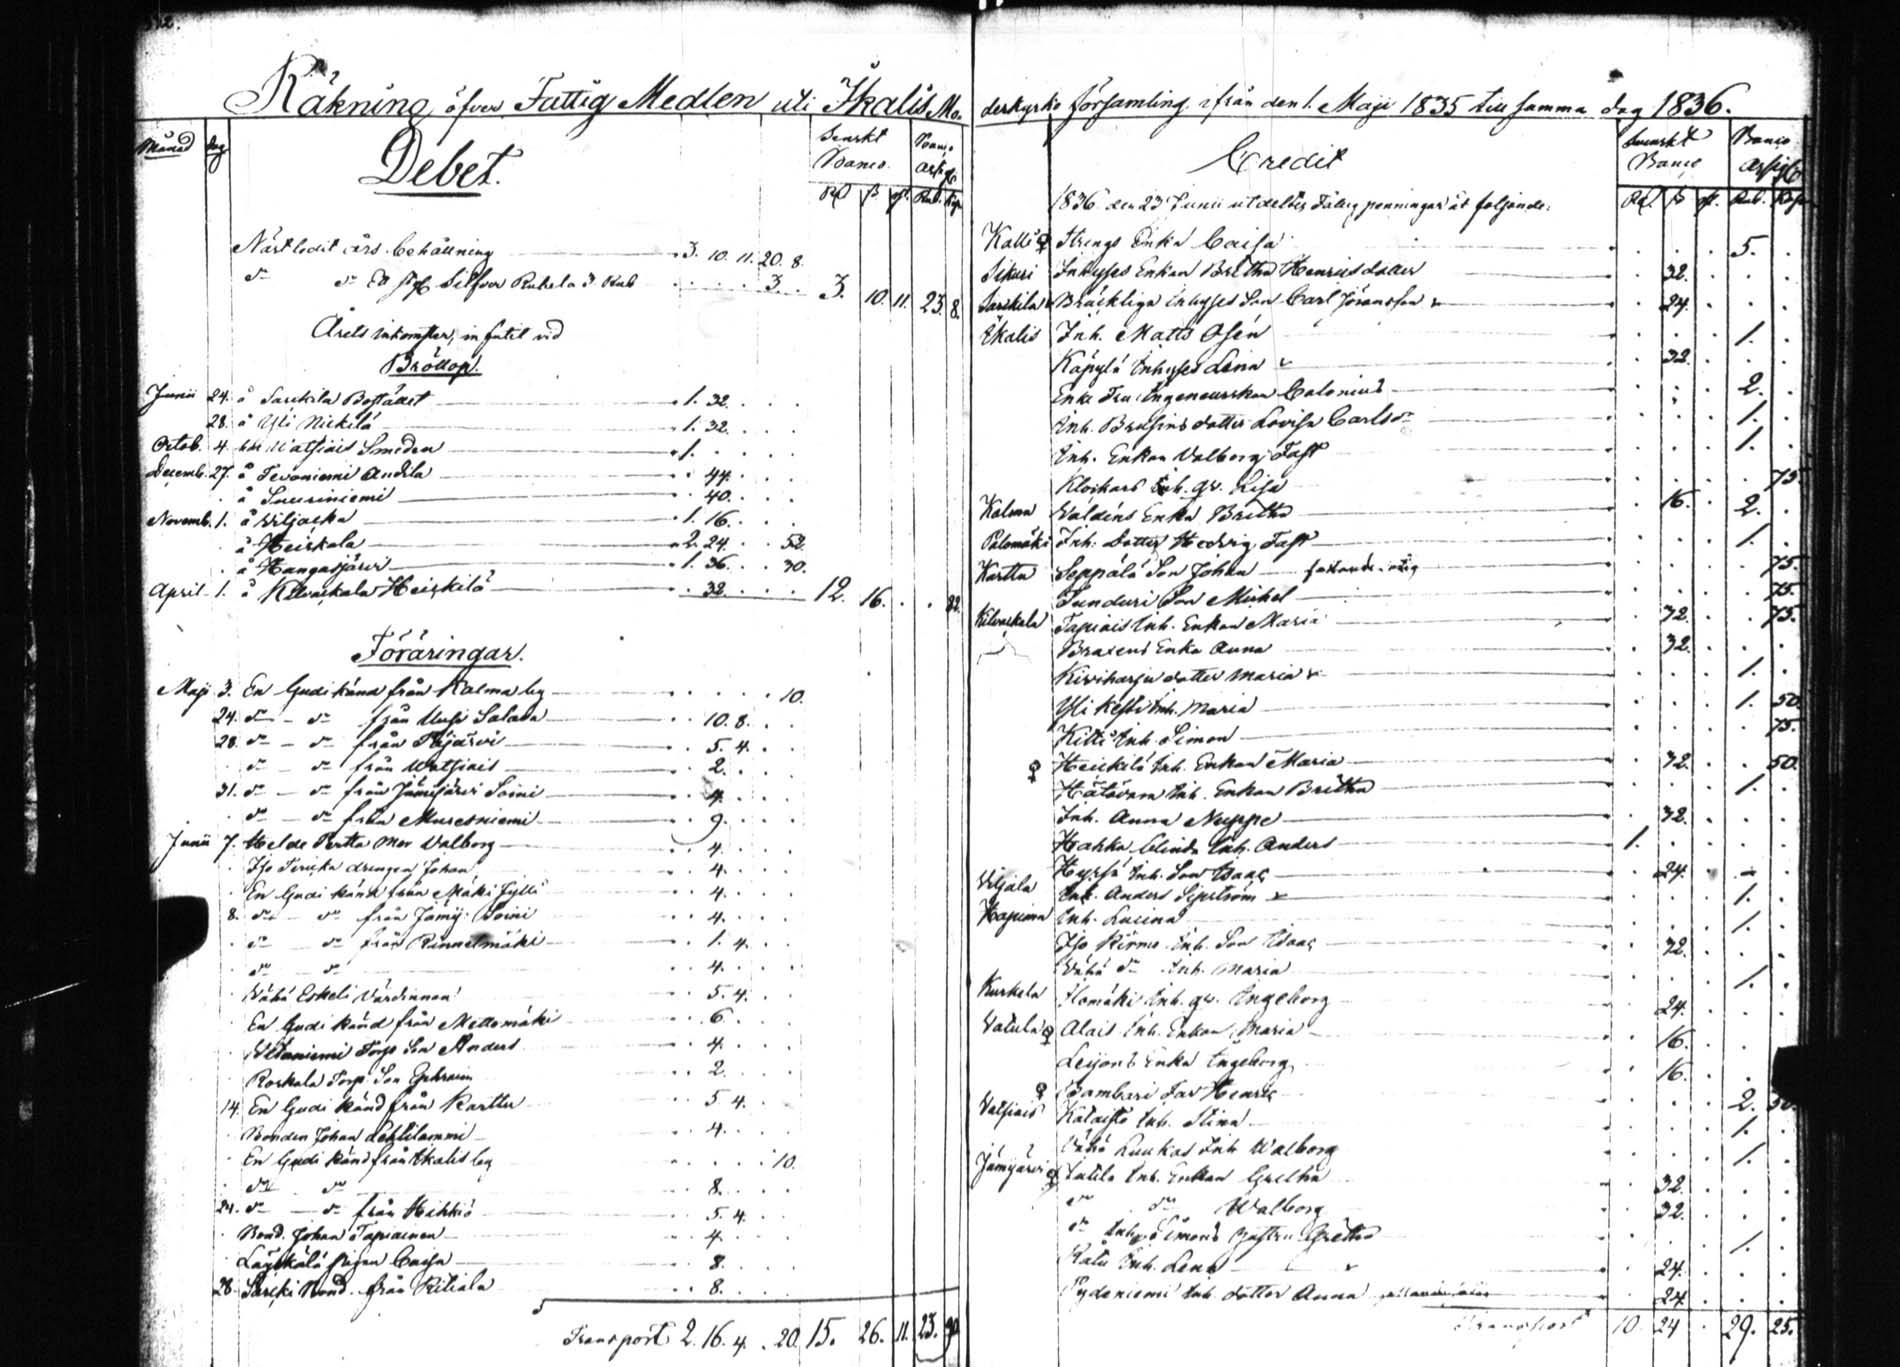 Räkning öfver Fattig Medlen uti Ikalis Mo-
derkyrko församling ifrån den 1. Maji 1835 till samma dag 1836.
Månad Dag Debet. Svenskt Banco. Banco assigt.
Rd ß rst. Rub. Kop.
Näst ledit års behållning 3. 10. 11. 20. 8.
do do Ett st. Silfver Rubela 3 Rub 3. 3. 10. 11. 23. 8.
Årets inkomster, in fatil vid
Bröllop.
Junii 24. å Sarkila Bostället 1. 32.
28. å Yli Nickilä 1. 32.
Octob. 4. hos Watsiais Smeden 1.
Decemb. 27. å Tevaniemi Andila 44.
å Sauriniemi 40.
Novemb. 1. å Wiljaska 1. 16.
å Heiskala 2. 24. 52.
å Kangasjärvi 1. 36. 30.
April 1. å Kilvaskala Heiskilä 32. 12. 16. 82.
Föräringar.
Maji 3. En Gudi känd från Kalma by 10.
24. do do från Uusi Salava 10. 8.
28. do do från 5. 4.
do do från Watsiais 2.
31. do do från Jämijärvi Soini 4.
do do från Muresniemi 9.
Junii 7. Helde Pertta Mor Walborg 4.
Iso drengen Johan 4.
En Gudi känd från Mäki Jylli 4.
8. do do från Jämij. Soini 4.
do do från Rinnelmäki 1. 4.
do do 4.
Wähä Eskeli Värdinnan 5. 4.
En Gudi känd från Mettomäki 6.
Torp Son Anders 4.
Roskala Torp Son Ephraim 2.
14. En Gudi känd från Karttu 5. 4.
Bonden Johan Lehtilammi 4.
En Gudi känd från Ikalis by 10.
do do 8.
24. do do från Heikkiö 5. 4.
Bond. Johan Tapiainen 4.
pigan Caisa 8.
28. Särki Bond. från Kitiala 8.
Transport 2. 16. 4. 20. 15. 26. 11. 23. 90.
Credit Svenskt Banco Banco assigt.
Rd ß rst. Rub. Kop.
1836 den 23 Junii utdeltes Fattig penningar åt foljande:
Kallis Strengs Enka Caisa 5.
Sikuri Inhyses Enkan Britha Henricsdotter 32.
Sarkila Bräckliga inhyses Son Carl Jöransson 24.
Ikalis Inh. Matts Osén 1.
Käpylä Inhyses Lena 32.
Enke Fru Ingeneurskan Calonius 2.
Inh. dotter Lovisa Carlsdr 1.
Inh. Enkan Walborg Fast 1.
Klockars Inh. qv. Lisa 75.
Kalma Waldéns Enka Britha 16. 2.
Palomäki Inh. Dotter Hedvig Fast 1.
Karttu Seppälä Son Johan 75.
Sunduri Son Mickel 75.
Kilvaskala Tapiais Inh. Enkan Maria 32. 75.
Braxens Enka Anna 32.
Kiviharju dotter Maria 1.
Yli Kesti Inh. Maria 1. 50.
Kitti Inh. Simon 75.
Heickilä Inh. Enkan Maria 32. 50.
Inh. Enkan Britha 1.
Inh. Anna Nuppe 32.
Hakka blinda Inh. Anders 1.
Inh. Son Isaac 24.
Viljala Inh. Anders Sipström 1.
Hapuoma Inh. Lusina 1.
Iso Inh. Son Isaac 32.
Wähä do Inh. Maria 1.
Kurkela Ilomäki Inh. qv. Ingeborg 24.
Vatula Alais Inh. Enkan Maria 16.
Leijons Enka Ingeborg 16.
Bambari Far Henric 2. 50.
Vatsiais Kataisto Inh. Stina 1.
Wähä Luukas Inh. Walborg 1.
Jämijärvi Tattila Inh. Enkan Gretha 32.
do do Walborg 32.
do Inh. Simons hustru Gretha 1.
Katu Inh. Lena 24.
Pydeniemi Inh. dotter Anna 24.
Transport 10. 24. 29. 25.